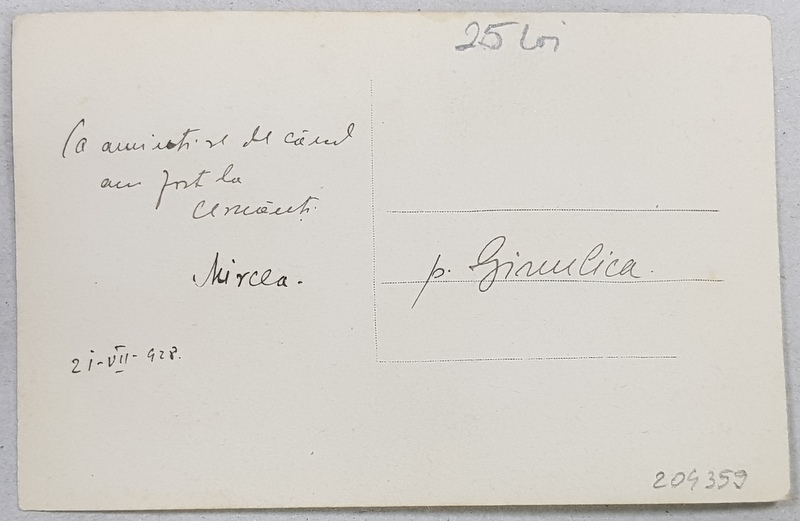 25 Loi
Ca amintire de când
am fost la
Cernăuți.
Mircea.
21-VII-928.
p. Gimulica.
204359